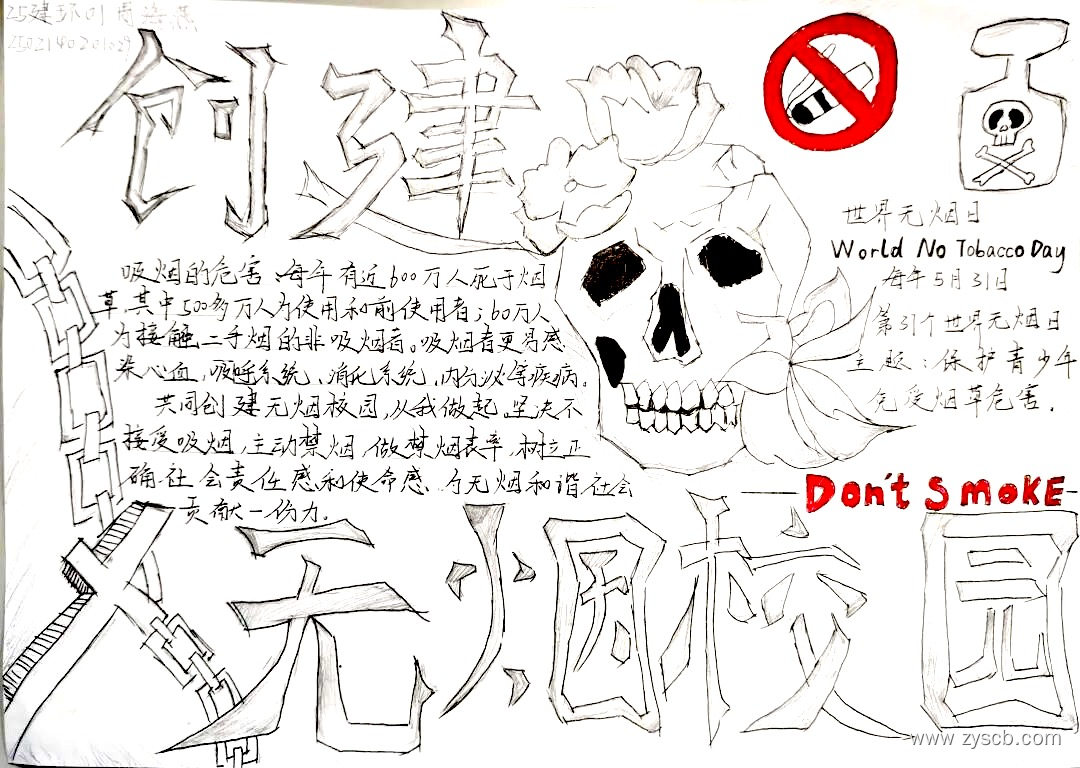 25建环01
2502140201029
创建
吸烟的危害:每年有近600万人死于烟
草,其中500多万人为使用和前使用者;60万人
为接触二手烟的非吸烟者。吸烟者更易感
染心血,吸呼系统、消化系统,内分泌等疾病。
共同创建无烟校园,从我做起,坚决不
接受吸烟,主动禁烟,做禁烟表率,树立正
确社会责任感和使命感,为无烟和谐社会
贡献一份力。
世界无烟日
World No Tobacco Day
每年5月31日
第31个世界无烟日
主题:保护青少年
免受烟草危害.
Don't SmoKE
无烟校园
www.zyscb.com